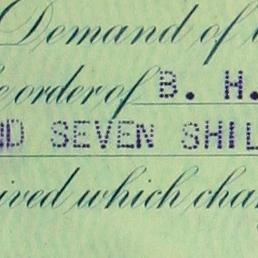 Demand of
order of B. H.
ND SEVEN SHIL
ived which char